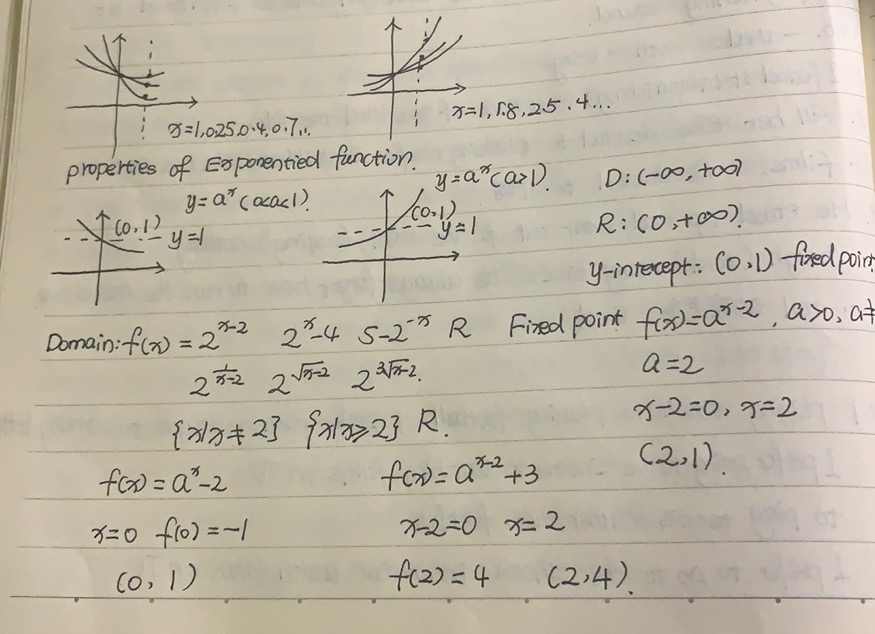 x=1, 0.25, 0.4, 0.7, ..
x=1, 1.8, 2.5, 4...
properties of Exponentied function.
y=aˣ(a<a<1). y=aˣ(a>1). D:(-∞, +∞)
(0,1) y=1 (0,1) y=1 R: (0, +∞).
y-intercept: (0,1) fixed point
Domain: f(x)=2ˣ⁻² 2ˣ-4 5-2⁻ˣ R Fixed point f(x)=aˣ⁻², a>0, a≠
2^(1/(x-2)) 2^√(x-2) 2^∛(x-2). a=2
{x|x≠2} {x|x≥2} R. x-2=0, x=2
(2,1).
f(x)=aˣ-2 f(x)=aˣ⁻²+3
x=0 f(0)=-1 x-2=0 x=2
(0, 1) f(2)=4 (2,4).